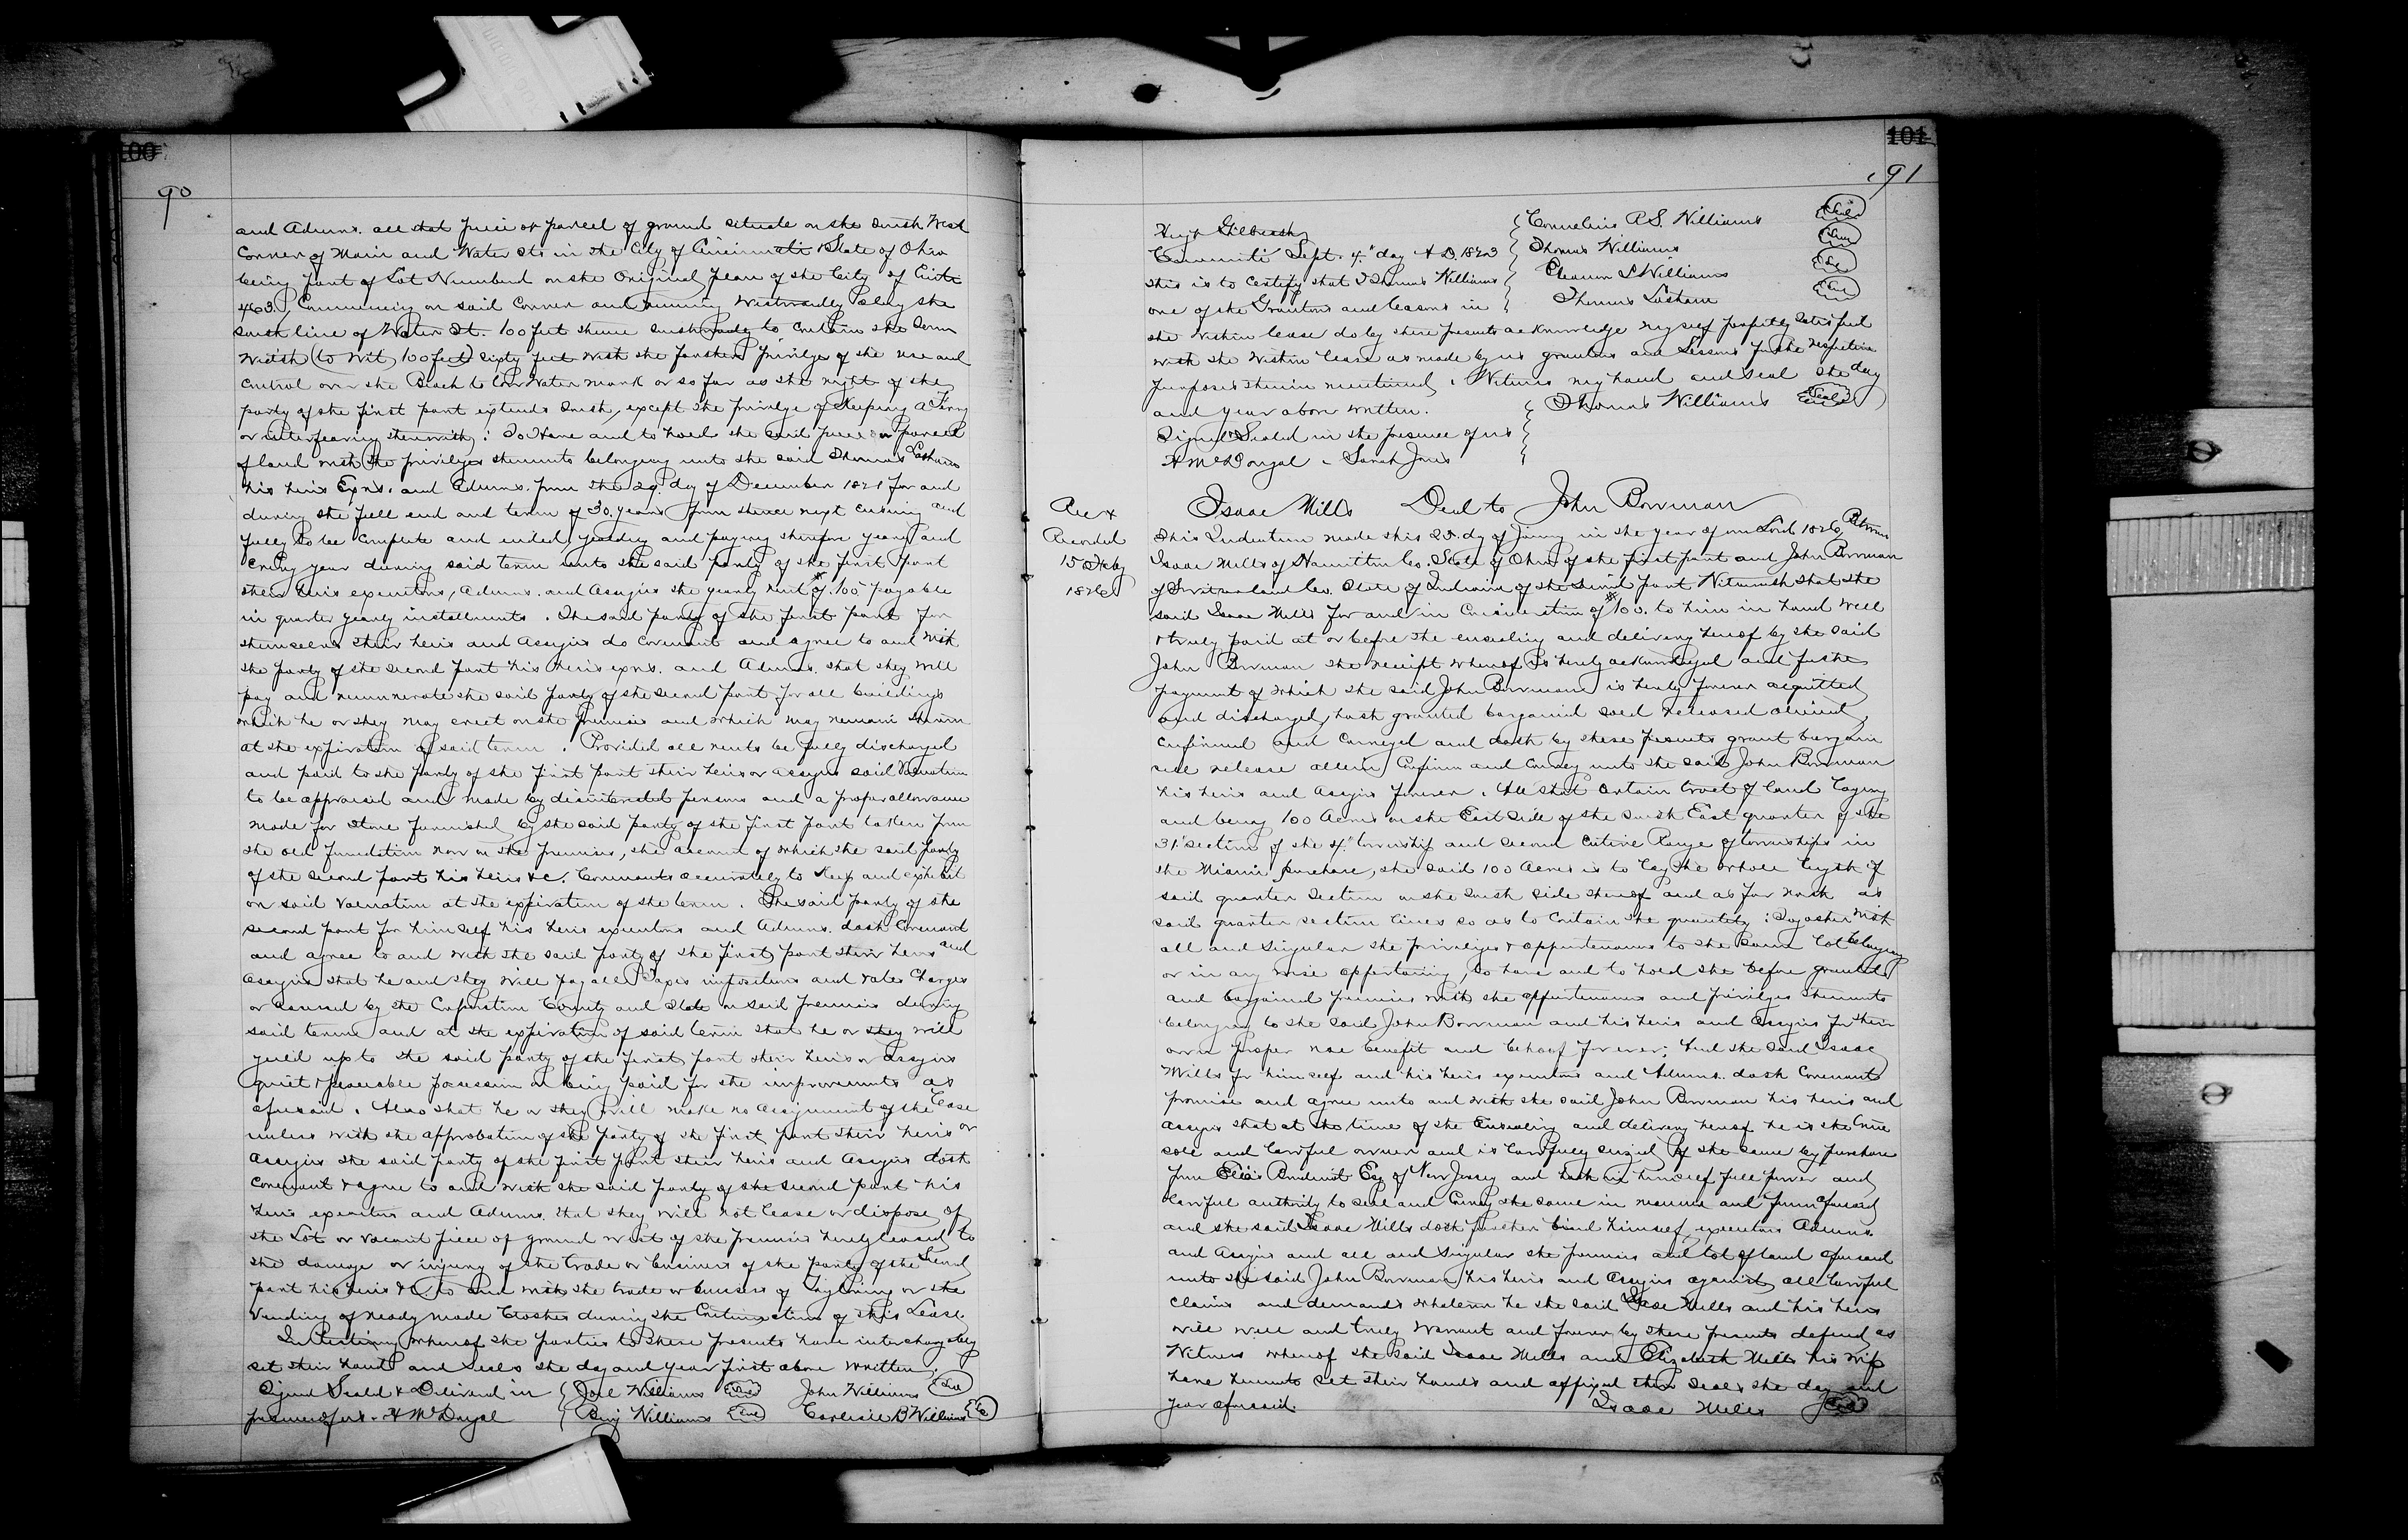 100
90
and Admrs. all that piece or parcel of ground situate on the South West
Corner of Main and Water Sts in the City of Cincinnati & State of Ohio
being part of Lot Numbered on the Original plan of the City of Cinti
463, Commencing on said Corner and running Westwardly along the
South line of Water St. 100 feet thence Southwardly to Contain the Same
Width (to wit, 100 feet) Sixty feet with the farther privilege of the use and
Control over the Beach to low Water mark or so far as the right of the
party of the first part extends South, except the privilege of Keeping a Ferry
or interfearing therewith: To Have and to hold the said piece or parcel
of land with the privileges thereunto belonging unto the said Thomas Latham
his heirs Exrs. and Admrs. from the 29. day of December 1821 for and
during the full end and term of 30. years from thence next ensuing and
fully to be Complete and ended, yeilding and paying therefor yearly and
every year during said term unto the said party of the first part
their heirs executors, Admrs. and Assigns the yearly rent of $100 payable
in quarter yearly installments. The said party of the first part for
themselves their heirs and Assigns do Covenant and agree to and with
the party of the second part his heirs exrs. and Admrs. that they will
pay and remunerate the said party of the second part for all buildings
which he or they may erect on the premises and which may remain therein
at the expiration of said term. Provided all rents be fully discharged
and paid to the party of the first part their heirs or assigns said Valuation
to be appraised and made by disinterested persons and a proper allowance
made for Stone furnished by the said party of the first part taken from
the old foundation now on the premises, the account of which the said party
of the second part his heirs &c. Covenants accurately to Keep and exhibit
on said valuation at the expiration of the term. The said party of the
second part for himself his heirs executors and Admrs. doth Covenant
and agree to and with the said party of the first part their heirs and
assigns that he and they will pay all Taxes impositions and rates Charges
or assessed by the Corporation County and State on said premises during
said term and at the expiration of said term that he or they will
yeild up to the said party of the first part their heirs or assigns
quiet & peaceable possession on being paid for the improvements as
aforesaid. Also that he or they will make no assignment of the Lease
unless with the approbation of the party of the first part their heirs or
assigns the said party of the first part their heirs and assigns doth
Covenant & agree to and with the said party of the second part his
heirs executors and Admrs. that they will not lease or dispose of
the Lot or vacant piece of ground west of the premises hereby leased to
the damage or injury of the trade or business of the party of the Second
part his heirs &c to and with the trade or business of Tayloring or the
Vending of ready made Clothes during the Continuation of this Lease
In Testimony whereof the parties to these presents have interchangably
set their hands and seals the day and year first above written.
Signed Seald & Delivered in { Joel Williams Seal John Williams Seal
presence of us - H McDougal { Benj Williams Seal Carlisle B Williams Seal
101
91
Hugh Gilbreath { Cornelius R.S. Williams Seal
Cincinnati Sept. 4. day A D. 1823 { Thomas Williams Seal
This is to Certify that I Thomas Williams { Eleanor S Williams Seal
one of the Grantors and leasors in { Thomas Latham Seal
the within lease do by these presents acknowledge myself perfectly satisfied
with the within lease as made by us grantors and Lessors for the respective
purposes therein mentioned. Witness my hand and seal the day
and year above written. { Thomas Williams Seal
Signed & Sealed in the presence of us {
H McDougal - Sarah Jones {
Isaac Mills Deed to John Bowman
Recx
Recorded
15 Feby
1826
This Indenture made this 25. dy of in the year of our Lord 1826 Between
Isaac Mills of Hamilton Co. State of Ohio of the first part and John Bowman
of Switzerland Co. State of Indiana of the second part Witnesseth that the
said Isaac Mills for and in Consideration of $100. to him in hand well
& truly paid at or before the ensealing and delivery hereof by the said
John Bowman the receipt whereof is hereby acknowledged and for the
payment of which the said John Bowman is hereby forever acquitted
and discharged, hath granted bargained sold released aliened,
Confirmed and Conveyed and doth by these presents grant bargain
sell release allien Confirm and Convey unto the said John Bowman
his heirs and assigns forever. All that Certain tract of land laying
and being 100 Acres on the East side of the South East quarter of the
31. section of the 4. township and second entire Range of townships in
the Miami purchase, the said 100 Acres is to lay the whole length of
said quarter Section on the South side thereof and as far North as
said quarter section lines so as to Contain the quantity: Together with
all and singular the privileges & appurtenances to the same lot belonging
or in any wise appertaining, to have and to hold the before granted
and bargained premises with the appurtenances and privileges thereunto
belonging to the said John Bowman and his heirs and assigns for their
own proper use benefit and behoof forever; And the said Isaac
Mills for himself and his heirs executors and Admrs. doth Covenant
promise and agree unto and with the said John Bowman his heirs and
assigns that at the time of the Ensealing and delivery hereof he is the true
sole and lawful owner and is lawfully seized of the same by purchase
from Elias Boudinot Esq of New Jersey and hath in himself full power and
lawful authority to sell and Convey the same in manner and form aforesaid
and the said Isaac Mills doth further bind himself, executors Admrs.
and assigns and all and singular the premises and lot of land aforesaid
unto the said John Bowman his heirs and assigns against all lawful
Claims and demands whatever he the said Isaac Mills and his heirs
will well and truly Warrant and forever by these presents defend as
Witness whereof the said Isaac Mills and Elizabeth Mills his wife
have hereunto set their hands and affixed their seals the day and
year aforesaid. Isaac Mills Seal